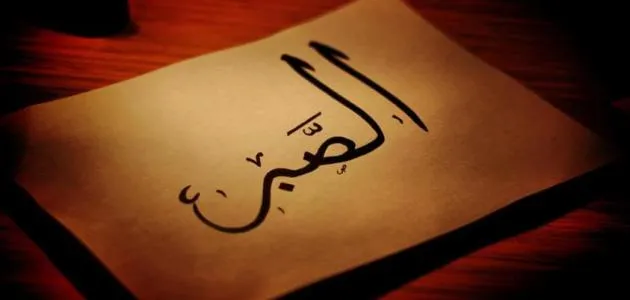 الصَّبر